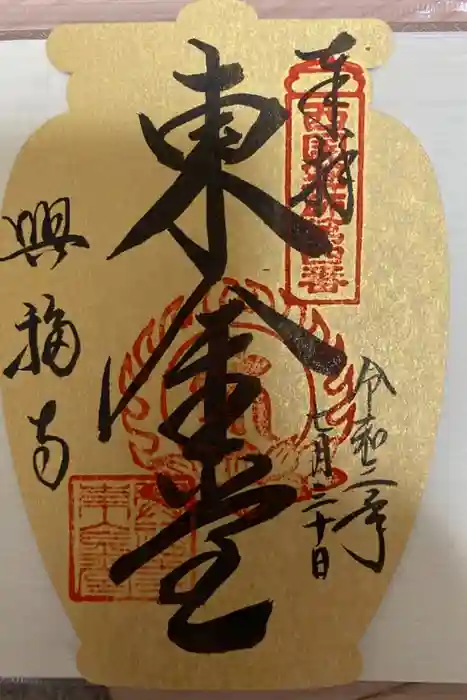 奉拝
東金堂
令和二年
七月三十日
興福寺